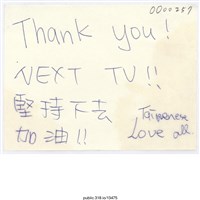 0000257
Thank you!
NEXT TV!!
堅持下去
加油!!
Taiwanese
Love all.
public.318.io/15475